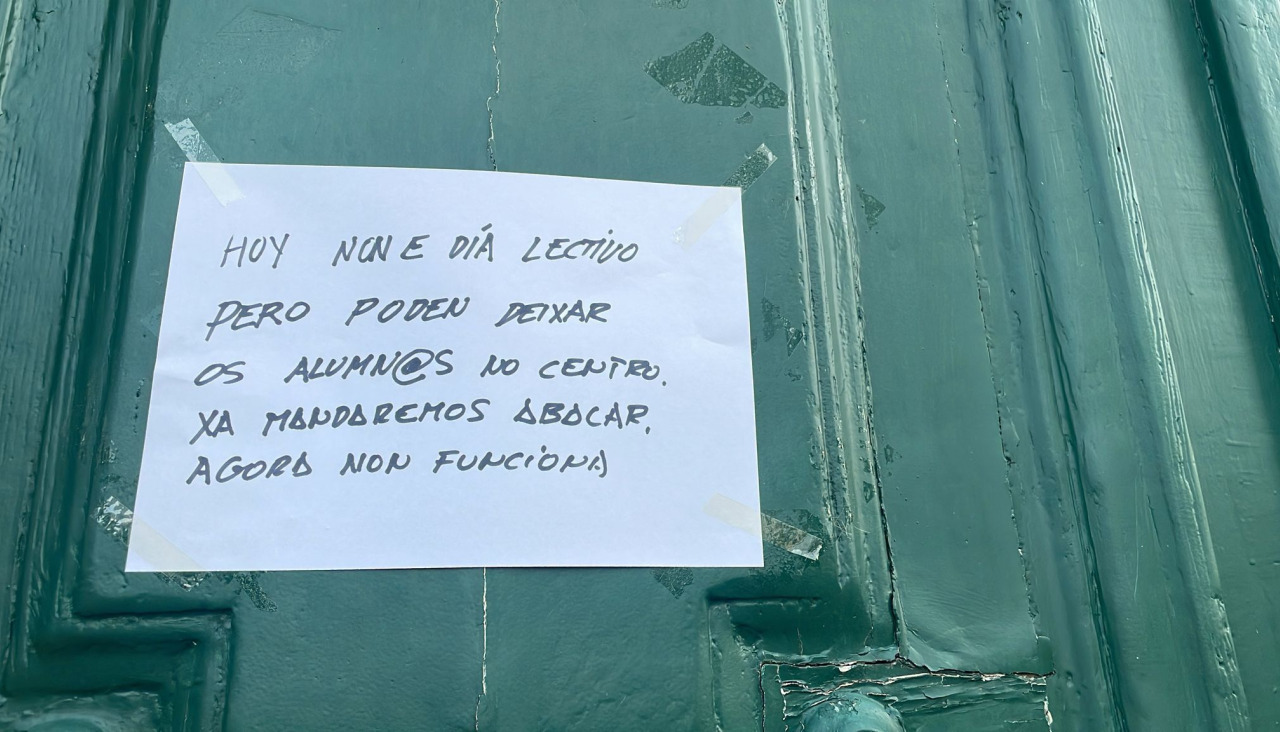 HOY NON E DÍÁ LECTIVO
PERO PODEN DEIXAR
OS ALUMN@S NO CENTRO.
XA MANDAREMOS ABACAR.
AGORA NON FUNCIONA